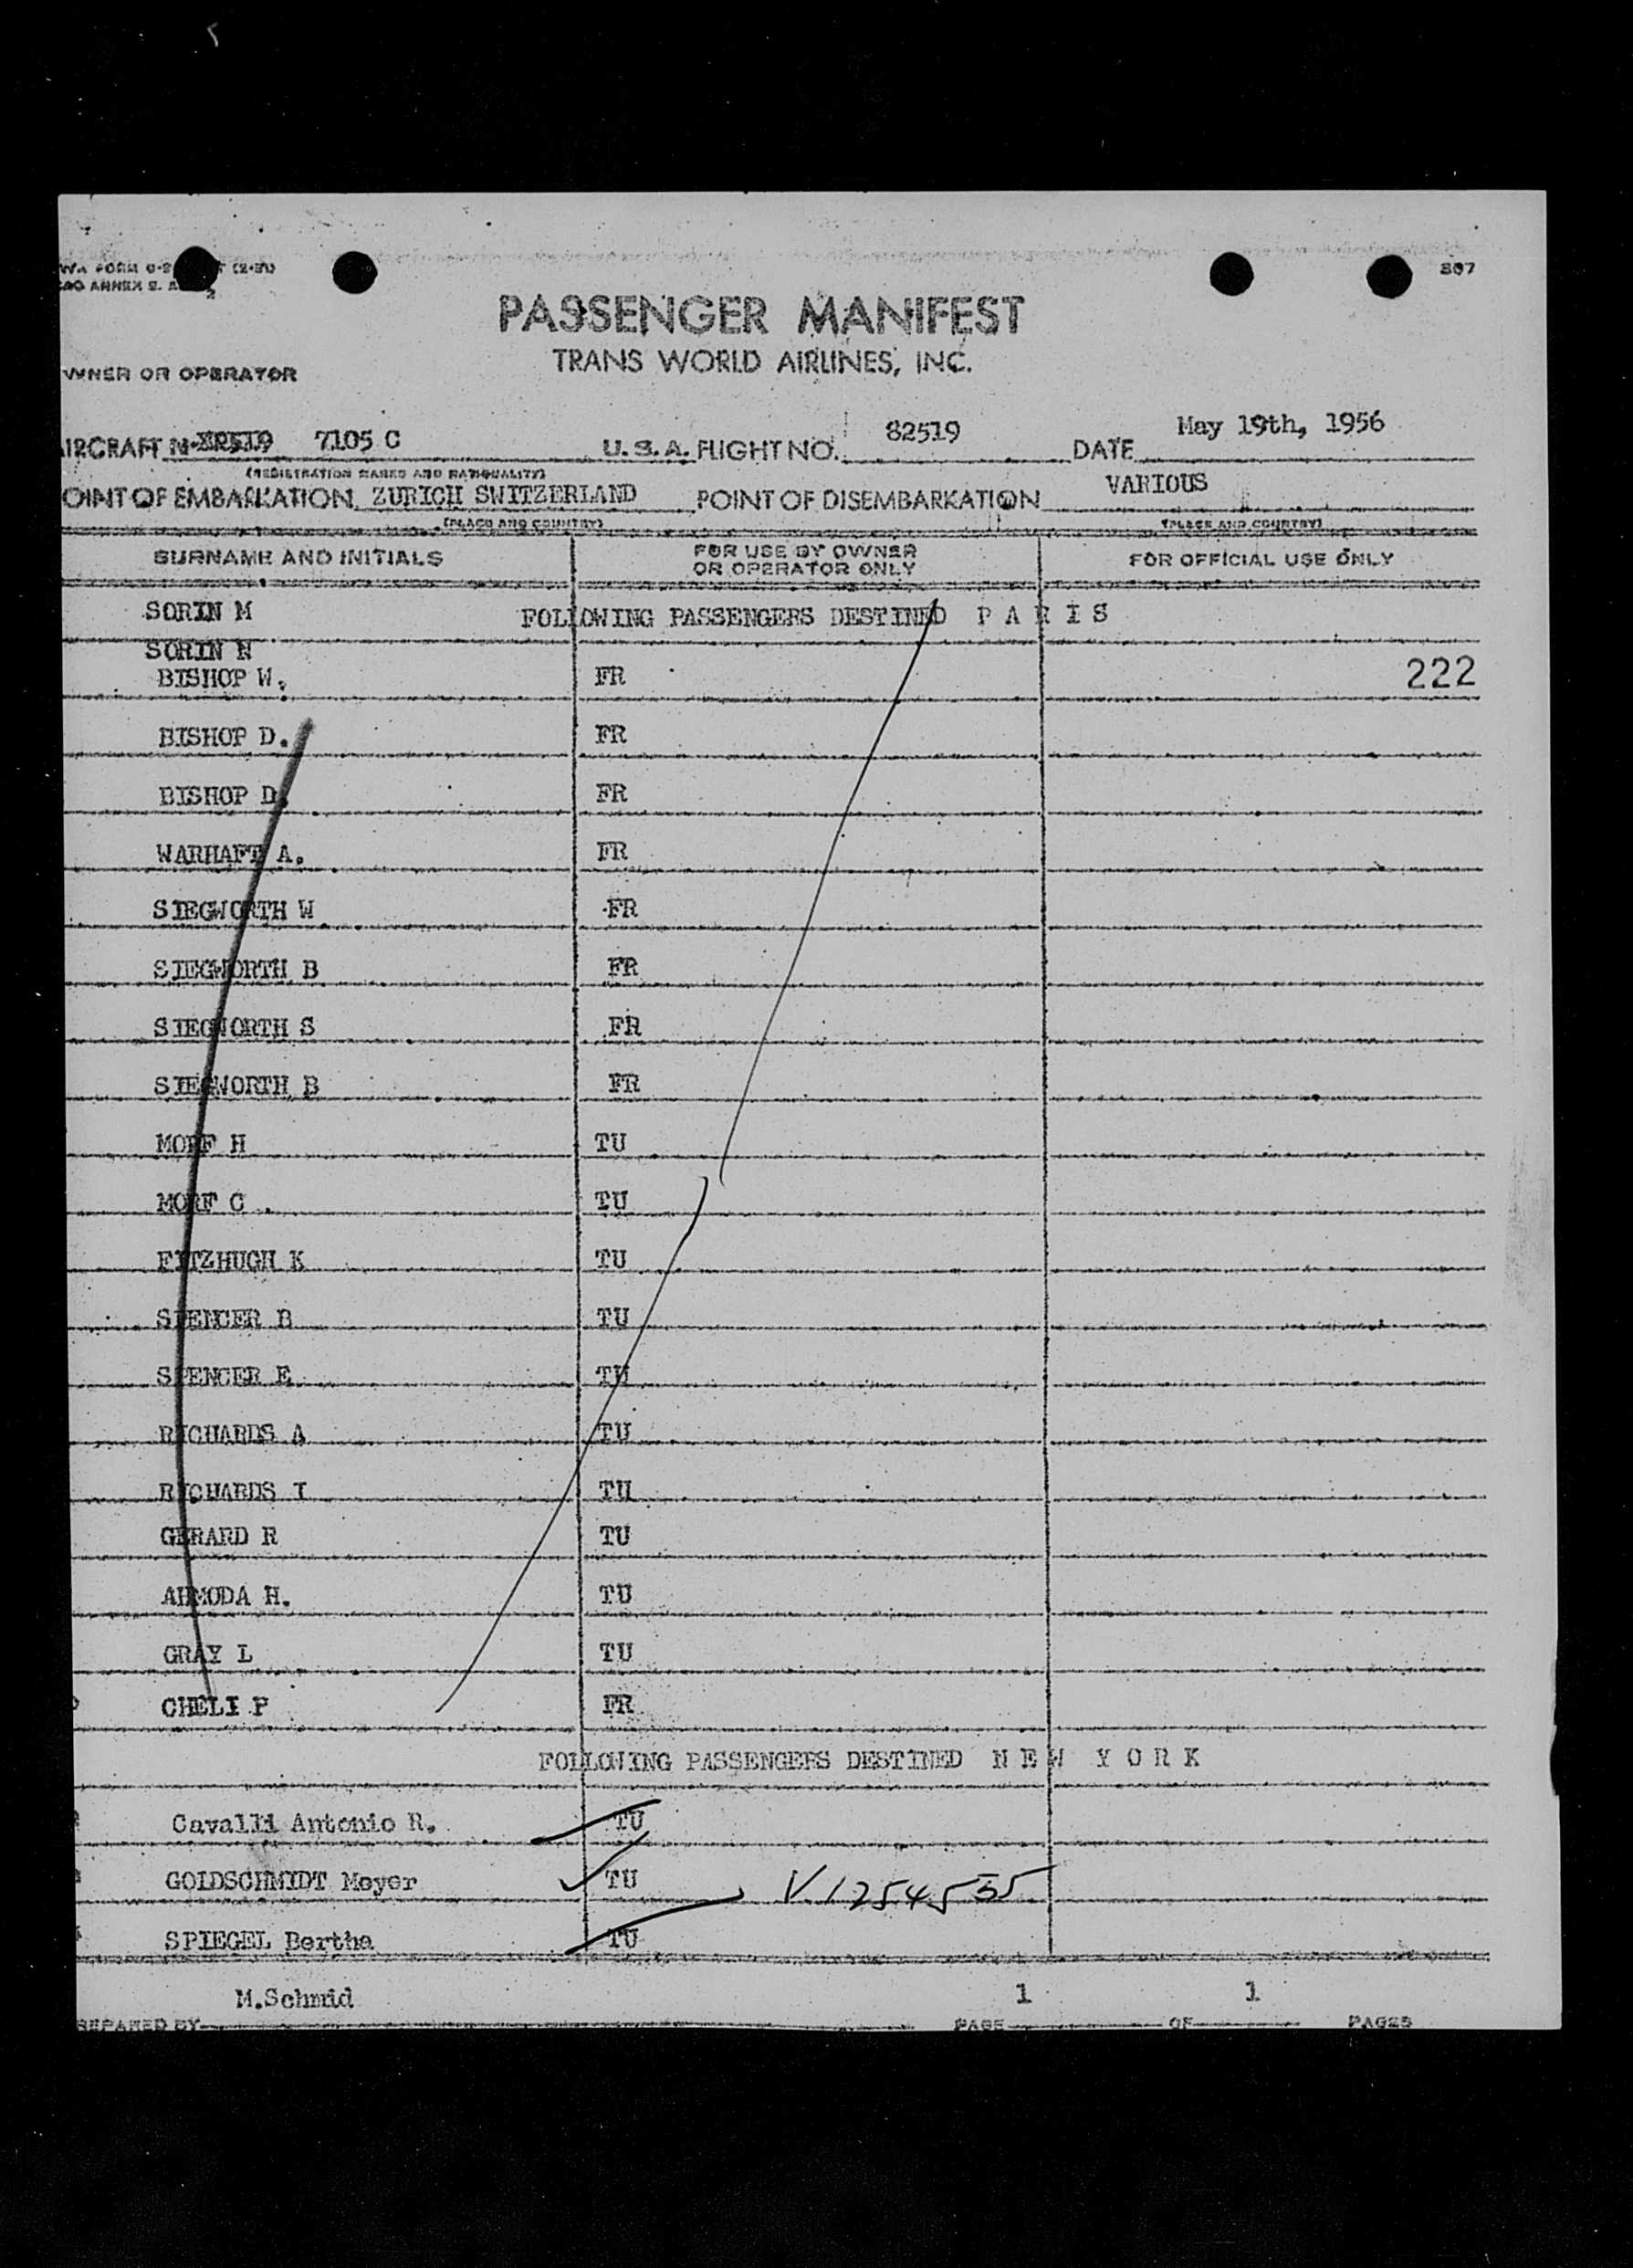 WA FORM (2-51)
ANNEX 9.
2
807
PASSENGER MANIFEST
TRANS WORLD AIRLINES, INC.
WNER OR OPERATOR
IRCRAFT N- 7105 C U.S.A. FLIGHT NO. 82519 DATE May 19th, 1956
(REGISTRATION MARKS AND NATIONALITY)
OINT OF EMBARKATION ZURICH SWITZERLAND POINT OF DISEMBARKATION VARIOUS
(PLACE AND COUNTRY) (PLACE AND COUNTRY)
SURNAME AND INITIALS FOR USE BY OWNER OR OPERATOR ONLY FOR OFFICIAL USE ONLY
SORIN M FOLLOWING PASSENGERS DESTINED P A R I S
SORIN N
BISHOP W. FR 222
BISHOP D. FR
BISHOP D. FR
WARHAFT A. FR
SIEGWORTH W FR
SIEGWORTH B FR
SIEGWORTH S FR
SIEGWORTH B FR
MORF H TU
MORF C . TU
FITZHUGH K TU
SPENCER B TU
SPENCER E TU
RICHARDS A TU
RICHARDS I TU
GERARD R TU
AHMODA H. TU
GRAY L TU
CHELI P FR
FOLLOWING PASSENGERS DESTINED N E W Y O R K
Cavalli Antonio R. TU
GOLDSCHMIDT Meyer TU V 1254535
SPIEGEL Bertha TU
M.Schmid 1 1
REPARED BY PAGE OF PAGES